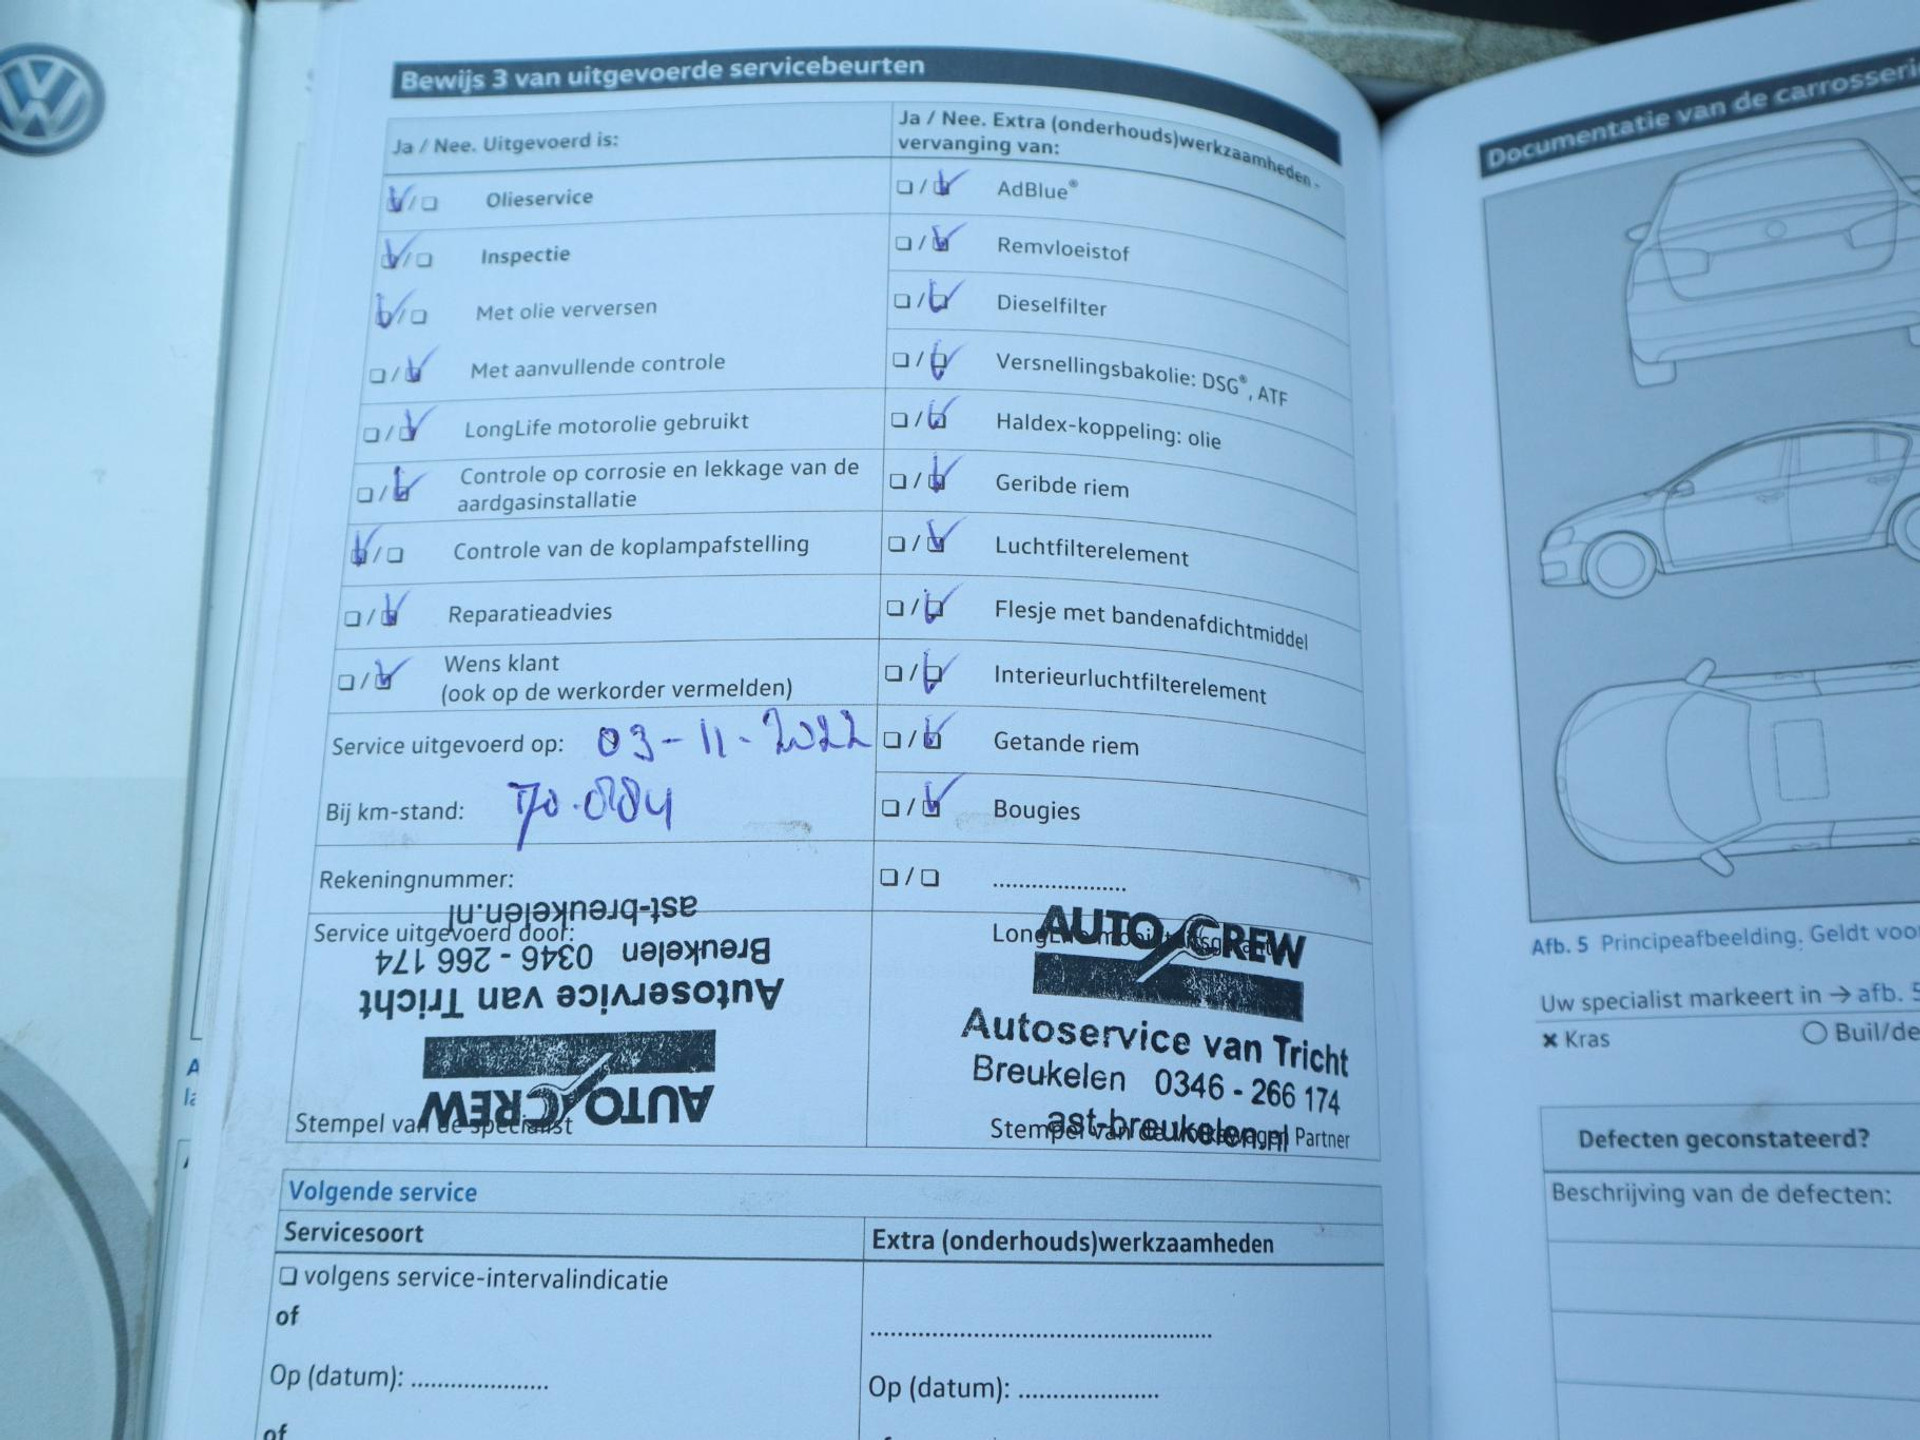 Bewijs 3 van uitgevoerde servicebeurten
Ja / Nee. Uitgevoerd is:
Olieservice
Inspectie
Met olie verversen
Met aanvullende controle
LongLife motorolie gebruikt
Controle op corrosie en lekkage van de
aardgasinstallatie
Controle van de koplampafstelling
Reparatieadvies
Wens klant
(ook op de werkorder vermelden)
Service uitgevoerd op: 03-11-2022
Bij km-stand: 70.084
Rekeningnummer:
Service uitgevoerd door:
ast-breukelen.nl
Breukelen 0346 - 266 174
Autoservice van Tricht
AUTO CREW
Stempel van de specialist
Ja / Nee. Extra (onderhouds)werkzaamheden -
vervanging van:
AdBlue®
Remvloeistof
Dieselfilter
Versnellingsbakolie: DSG®, ATF
Haldex-koppeling: olie
Geribde riem
Luchtfilterelement
Flesje met bandenafdichtmiddel
Interieurluchtfilterelement
Getande riem
Bougies
....................
AUTO CREW
Autoservice van Tricht
Breukelen 0346 - 266 174
ast-breukelen.nl
Stempel van de Volkswagen Partner
Volgende service
Servicesoort
volgens service-intervalindicatie
of
Op (datum): ....................
of
Extra (onderhouds)werkzaamheden
..................................................
Op (datum): ....................
Documentatie van de
Afb. 5 Principeafbeelding. Geldt
Uw specialist markeert in → afb. 5
× Kras
○
Defecten geconstateerd?
Beschrijving van de defecten: